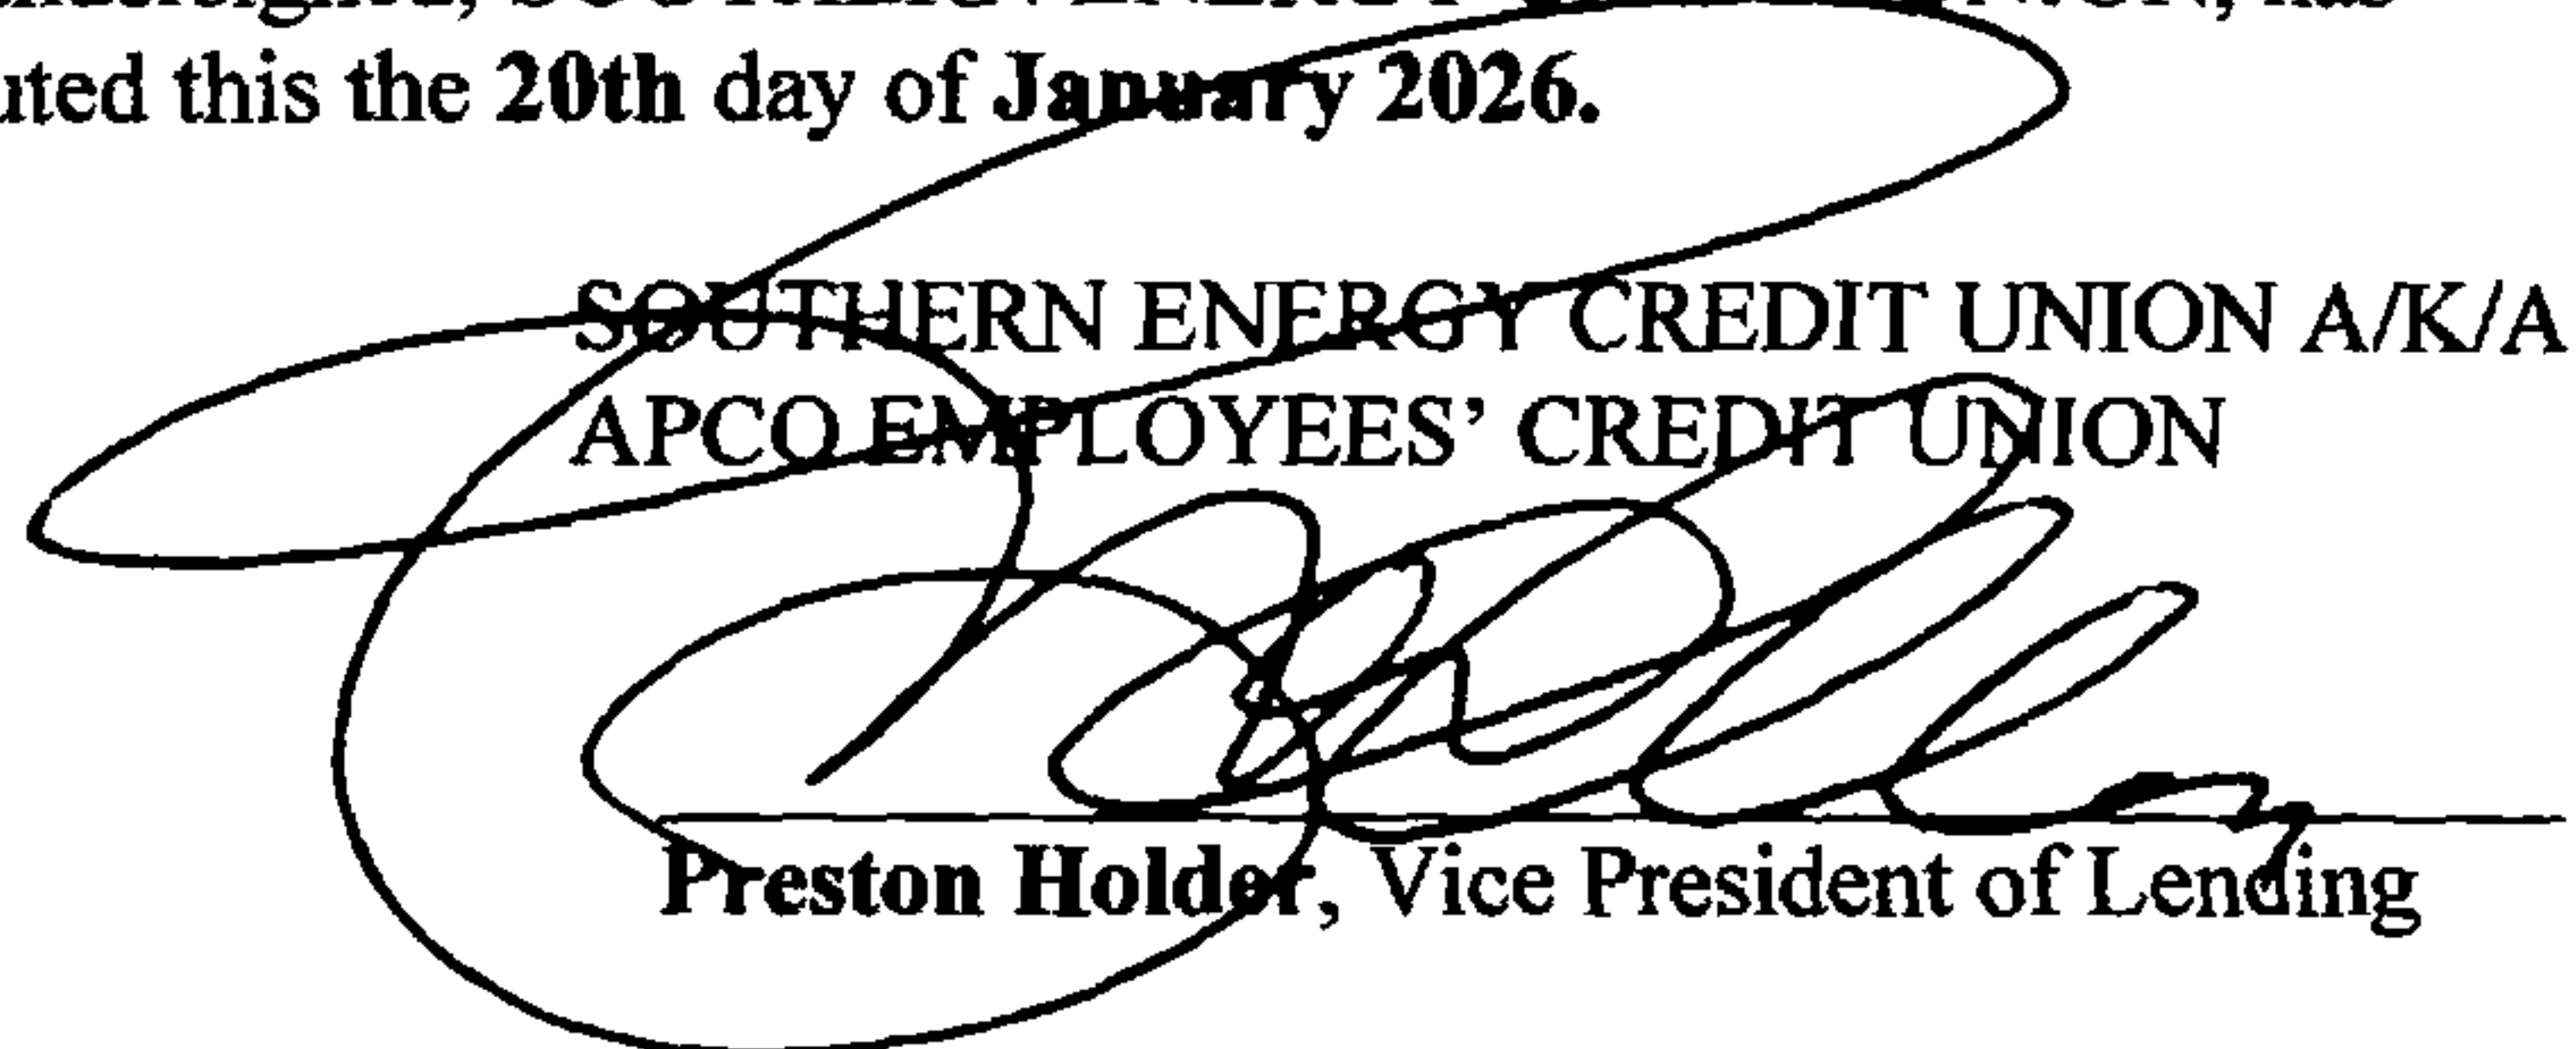 uted this the 20th day of January 2026.
SOUTHERN ENERGY CREDIT UNION A/K/A
APCO EMPLOYEES’ CREDIT UNION
Preston Holder, Vice President of Lending